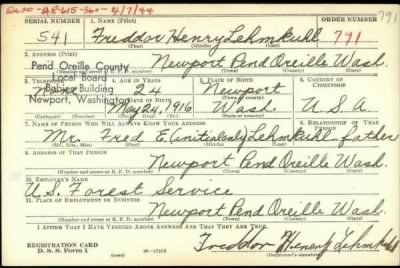 791
SERIAL NUMBER 1. NAME (Print) ORDER NUMBER
541 Freddor Henry Lehmkuhl 791
(First) (Middle) (Last)
2. ADDRESS (Print)
Newport Pend Oreille Wash.
Pend Oreille County
Local Board
Babier Building
Newport, Washington
3. TELEPHONE 4. AGE IN YEARS 5. PLACE OF BIRTH 6. COUNTRY OF CITIZENSHIP
24 Newport
DATE OF BIRTH
May 24, 1916 Wash. U.S.A.
7. NAME OF PERSON WHO WILL ALWAYS KNOW YOUR ADDRESS 8. RELATIONSHIP OF THAT PERSON
Mr. Fred E. (initial only) Lehmkuhl father
(Mr., Mrs., Miss) (First) (Middle) (Last)
9. ADDRESS OF THAT PERSON
Newport Pend Oreille Wash.
(Number and street or R. F. D. number) (Town) (County) (State)
10. EMPLOYER'S NAME
U.S. Forest Service
11. PLACE OF EMPLOYMENT OR BUSINESS
Newport Pend Oreille Wash.
(Number and street or R. F. D. number) (Town) (County) (State)
I AFFIRM THAT I HAVE VERIFIED ABOVE ANSWERS AND THAT THEY ARE TRUE.
REGISTRATION CARD
D. S. S. Form 1
Freddor Henry Lehmkuhl